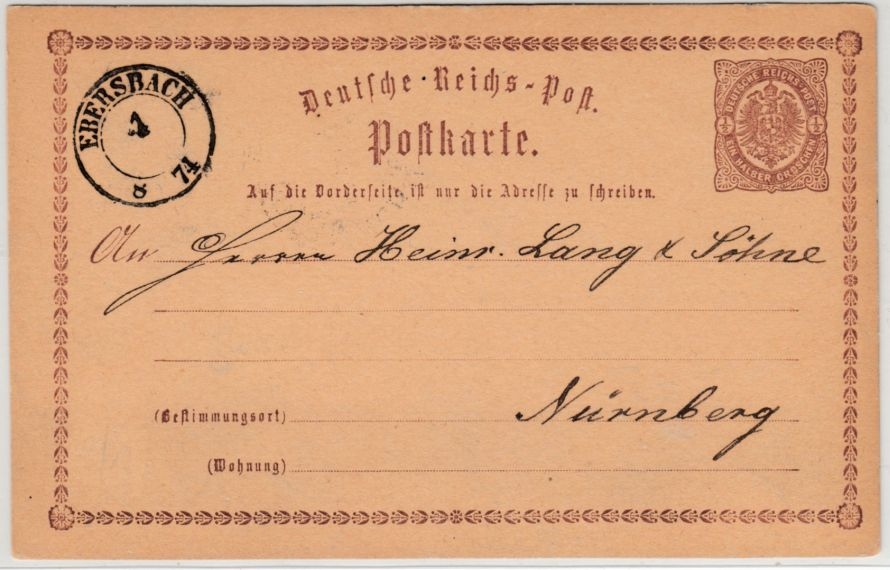 Deutsche Reichs-Post.
Postkarte.
Auf die Vorderseite ist nur die Adresse zu schreiben.
EBERSBACH
8 74
DEUTSCHE REICHS-POST
½ ½
EIN HALBER GROSCHEN
An Herren Heinr. Lang & Söhne
(Bestimmungsort) Nürnberg
(Wohnung)